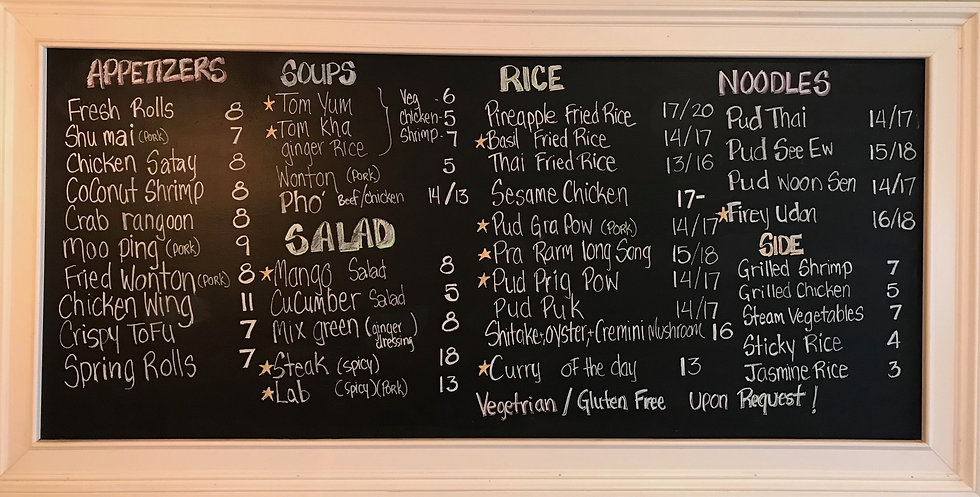 APPETIZERS
Fresh Rolls 8
Shu mai (Pork) 7
Chicken Satay 8
Coconut Shrimp 8
Crab rangoon 8
Moo Ping (PORK) 9
Fried Wonton (PORK) 8
Chicken Wing 11
Crispy Tofu 7
Spring Rolls 7
SOUPS
Tom Yum
Tom Kha
ginger Rice
Veg - 6
Chicken - 5
Shrimp - 7
Wonton (PORK) 5
Pho' Beef/Chicken 14/13
SALAD
Mango Salad 8
Cucumber Salad 5
Mix green (ginger dressing) 8
Steak (spicy) 18
Lab (spicy)(Pork) 13
RICE
Pineapple Fried Rice 17/20
Basil Fried Rice 14/17
Thai Fried Rice 13/16
Sesame Chicken 17-
Pud Gra Pow (PORK) 14/17
Pra Rarm long Song 15/18
Pud Prig Pow 14/17
Pud Puk 14/17
Shitake+oyster+Cremini Mushroom 16
Curry of the day 13
Vegetrian / Gluten Free Upon Request!
NOODLES
Pud Thai 14/17
Pud See Ew 15/18
Pud Woon Sen 14/17
Firey Udon 16/18
SIDE
Grilled Shrimp 7
Grilled Chicken 5
Steam Vegetables 7
Sticky Rice 4
Jasmine Rice 3